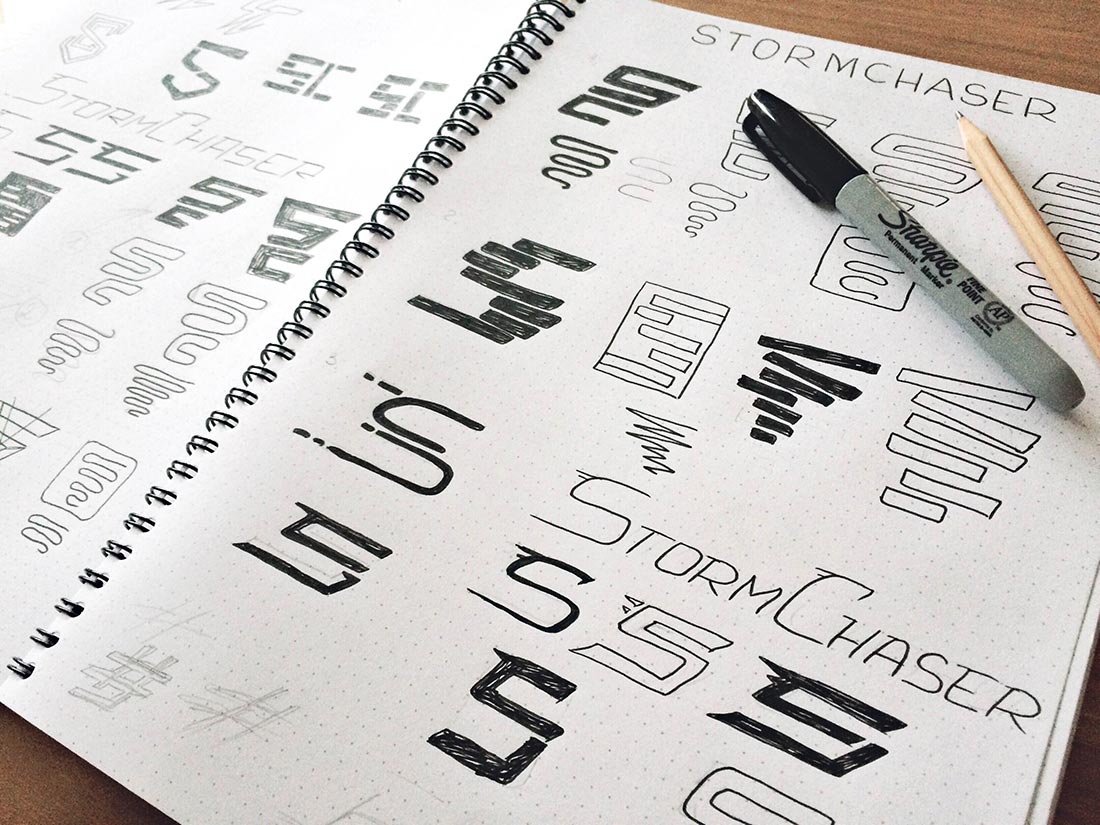 STORMCHASER
STORMCHASER
Sharpie®
Permanent Marker
FINE
POINT
AP
STORMCHASER
S
S
S
S
S
#
#